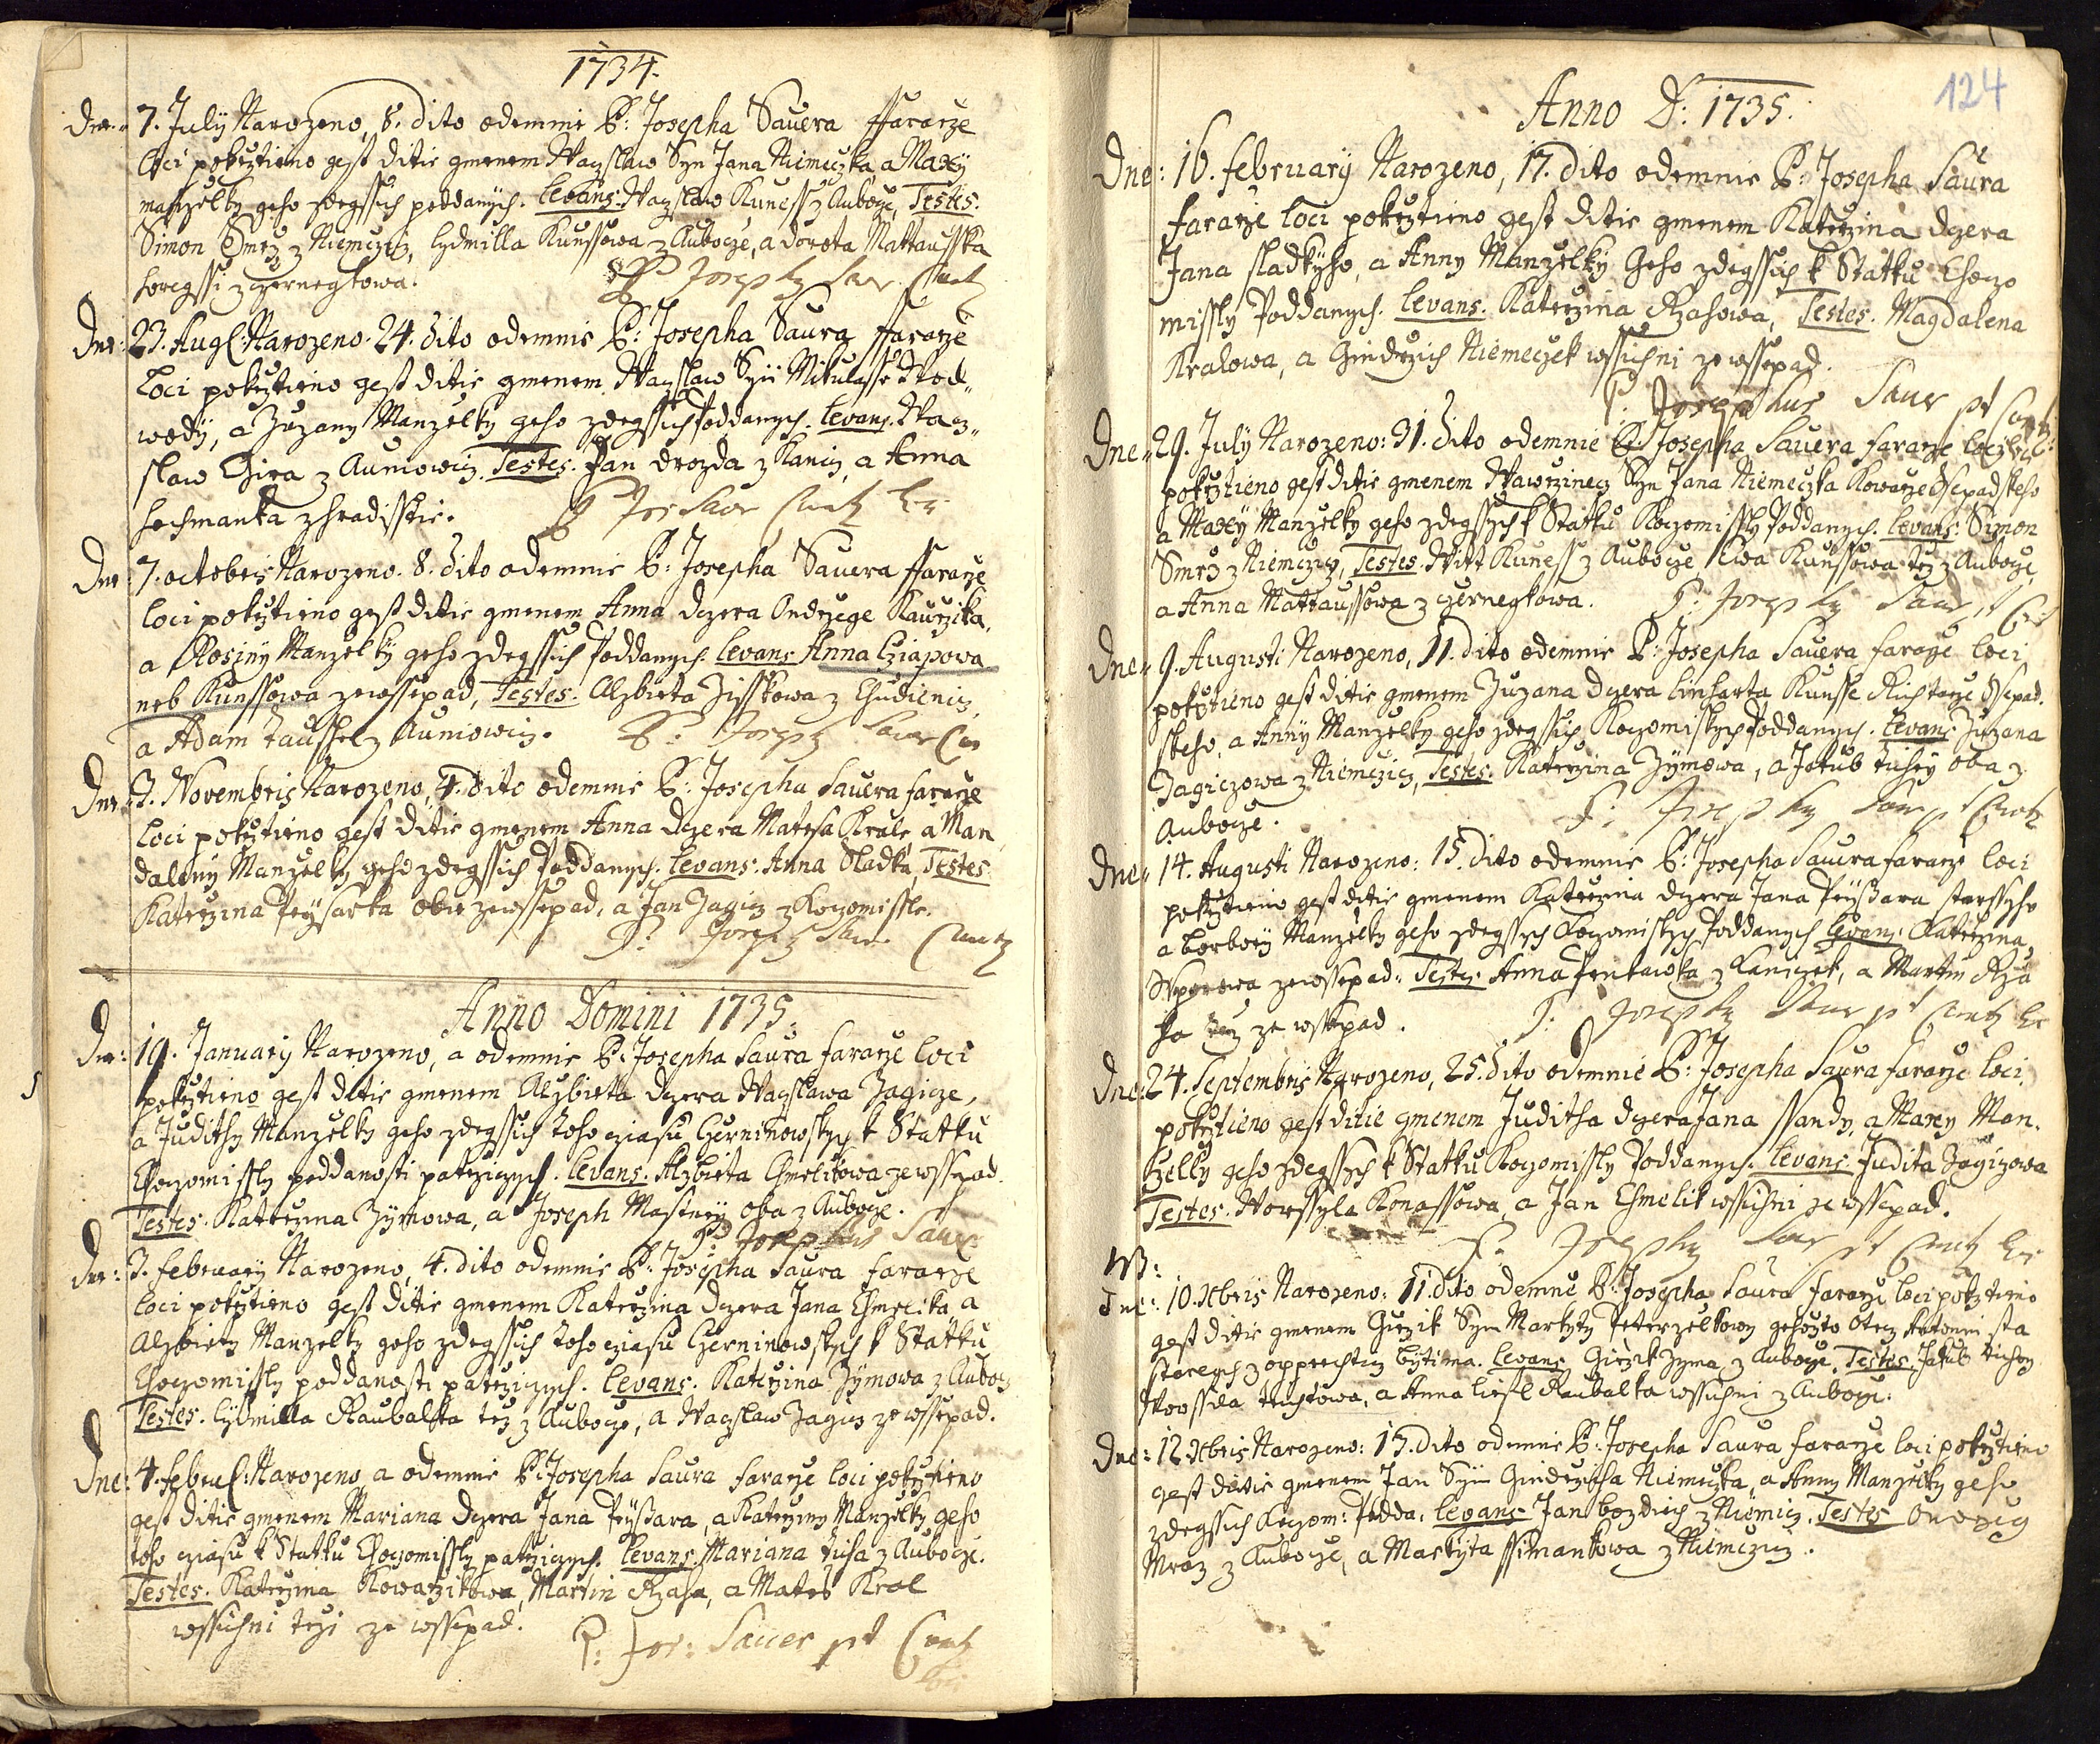 1734.
Dne: 7. July Narozeno, 8. dito odemnie P: Josepha Sauera ffararze
loci pokrztieno gest ditie gmenem Waczlaw Syn Jana Niemeczka, a Maryj
manzelky geho zdegssich poddanych. Levans. Waczlaw Kuness z Auboczе, Testes.
Simon Smrz z Niemczicz, lydmilla Kunssowa z Aubocze, a dorota Mattausska
horegssi z czernegkowa.
P Josephus Sauer Curatus
Dne: 23. Aug: Narozeno. 24. dito odemnie P: Josepha Saura ffararze
loci pokrztieno gest ditie gmenem Waczlaw Syn Mikulasse Wod„
wody, a Zuzany Manzelky geho zdegssich Poddanych. Levans. Wacz„
slaw Chira z Auniowicz. Testes. Jan drozda z Kanicz, a Anna
hochmanka z hradisstie.
P Jos Sauer Curatus loci
Dne 7. octobris Narozeno. 8. dito odemnie P: Josepha Sauera ffararze
loci pokrztieno gest ditie gmenem Anna dczera Ondrzege Kaurzika,
a Rosiny Manzelky geho zdegssich Poddanych. Levans Anna Cziapowa
neb Kunssowa zewssepad, Testes. Alzbieta Zisskowa z Chudienicz,
a Adam Taussek z Auniowicz.
P: Josephus Sauer Cur
Dne: 3. Novembris Narozeno, 4. dito odemnie P: Josepha Sauera fararze
loci pokrztieno gest ditie gmenem Anna dczera Mategsa Krale, a Man
daleny Manzelky geho zdegssich Poddanych. Levans. Anna Sladka, Testes
Katerzina Peysarka obie zewssepad, a Jan Jagicz z Koczomissle.
P: Josephus Sauer Curatus
Anno Domini 1735.
Dne: 19. January Narozeno, a odemnie P: Josepha Saura fararze loci
pokrztieno gest ditie gmenem Alzbieta dczera Waczlawa Jagicze,
a Judithy Manzelky geho zdegssich toho cziasu Czerninowskych k Statku
Choczomissly poddanosti patrziczych. Levans. Alzbieta Chmelikowa zewssepad.
Testes. Katerzina Zymowa, a Joseph Mastney oba z Aubocze.
P: Josephus Sauer
Dne: 3. february Narozeno, 4. dito odemnie P: Josepha Saura fararze
loci pokrztieno gest ditie gmenem Katerzina dczera Jana Chmelika, a
Alzbiety Manzelky geho zdegssich toho cziasu Czerninowskych k Statku
Choczomissly poddanosti patrziczych. Levans. Katerzina Zymowa z Auboczе
Testes. lydmilla Kaubalska tez z Aubocze, a Waczslaw Jagicz zewssepad.
Dne: 4. febru: Narozeno a odemnie P: Josepha Saura fararze loci pokrztieno
gest ditie gmenem Mariana dczera Jana Peyßara, a Katerziny Manzelky geho
toho cziasu k Statku Choczomissly patrziczych. Levans. Mariana Ticha z Aubocze.
Testes. Katerzina Kowarzikowa, Martin Rzaha, a Mates Kral
wssichni trzi ze wssepad.
P: Jos: Sauer pt Curatus
124
Anno D: 1735.
Dne: 16. february Narozeno, 17. dito odemnie P: Josepha Saura
fararze loci pokrztieno gest ditie gmenem Katerzina dczera
Jana sladkyho, a Anny Manzelky Geho zdegssich k Statku Choczo
missly Poddanych. Levans. Katerzina Rzahowa, Testes. Magdalena
Kralowa, a Gindrzich Niemeczek wssichni zewssepad.
P: Josephus Sauer pt Curatus
Dne„ 29. July Narozeno: 31. dito odemnie P: Josepha Sauera fararze loci
pokrztieno gest ditie gmenem Wawrzinecz Syn Jana Niemeczka Kowarze Wssepadskeho
a Maryj Manzelky geho zdegssych k Statku Koczomissly Poddanych. Levans. Simon
Smrz z Niemczicz, Testes. Witt Kuness z Aubocze, Ewa Kunssowa tez z Aubocze,
a Anna Mattaussowa z czernegkowa.
P: Josephus Sauer pt Cur
Dne„ 9. Augusti Narozeno, 11. dito odemnie P: Josepha Sauera fararze loci
pokrztieno gest ditie gmenem Zuzana dczera linharta Kunsse Richtarze Wssepad.
skeho, a Anny Manzelky geho zdegssich Koczomiskych Poddanych. Levans Zuzana
Jagiczowa z Niemczicz, Testes. Katerzina Zymowa, a Jakub Tichey oba z
Aubocze.
P: Josephus Sauer pt Curatus
Dne„ 14. Augusti Narozeno: 15. dito odemnie P: Josepha Saura fararze loci
pokrztieno gest ditie gmenem Katerzina dczera Jana Peyßara starssyho
a borbory Manzelky geho zdegssych Koczomiskych Poddanych Levans. Katerzina
zewssepad: Testes Anna z Kaniczek, a Martin Rza
ha tez ze wssepad.
P: Josephus Sauer pt Curatus loci
Dne: 24. Septembris Narozeno, 25. dito odemnie P: Josepha Saura fararze loci
pokrztieno gest ditie gmenem Juditha dczera Jana ssandy, a Maryj Man.
zelky geho zdegssych k Statku Koczomissly Poddanych. Levans Judita Jagiczowa
Testes. Worssyla Konassowa, a Jan Chmelik wssichni ze wssepad.
P: Josephus Sauer pt Curatus loci
NB:
Dne: 10. Xbris Narozeno: 11. dito odemne P: Josepha Saura fararze loci pokrztieno
gest ditie gmenem Girzik Syn Markyty Peterzelkowy gehozto Otecz Antonin sta
staregch z opprechticz bytima. Levans Girzik Zyma z Aubocze, Testes. Jakub Tichey
Worssila Tuchtowa, a Anna liesl Kaubalka wssichni z Aubocze.
Dne: 12 Xbris Narozeno: 13. dito odemnie P: Josepha Saura fararze loci pokrztieno
gest ditie gmenem Jan Syn Gindrzicha Niemeczka, a Anny Manzelky geho
zdegssich Koczom: Podda. Levans Jan bozdiech z Niemcicz. Testes Ondrzeg
Mraz z Aubocze, a Markyta ssimankowa z Niemczicz.